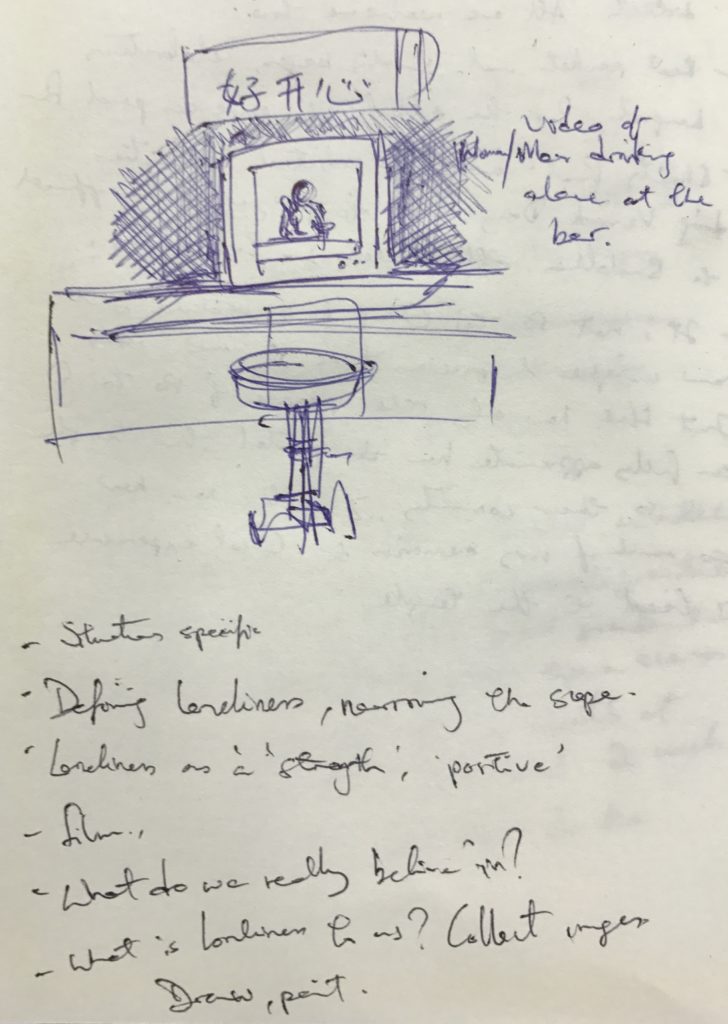 好开心
video of
Woman/Man drinking
alone at the
bar.
- Situation specific
- Defining loneliness, narrowing the scope.
- Loneliness as a 'strength', 'positive'
- film..
- What do we really believe in?
- What is loneliness to us? Collect images
Draw, paint.